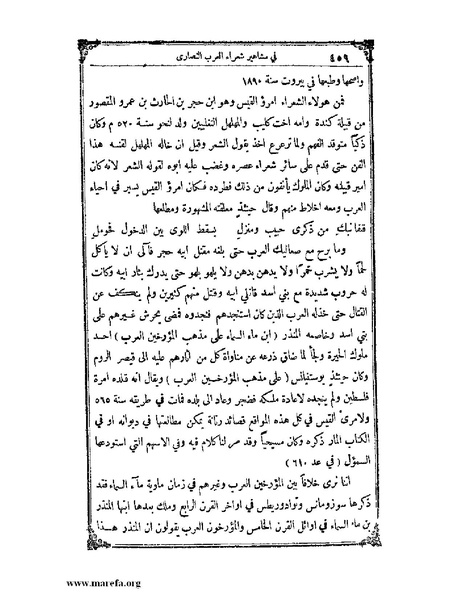 في مشاهير شعراء العرب النصارى
٤٥٩
واضحها وطبعها في بيروت سنة ١٨٩٠
فمن هولاء الشعراء امرؤ القيس وهو ابن حجر بن الحارث بن عمرو المقصور
من قبيلة كندة وامه اخت كليب والمهلهل التغلبيين ولد لنحو سنة ٥٢٠ م وكان
ذكياً متوقد الفهم ولما ترعرع اخذ يقول الشعر وقيل ان خاله المهلهل لقنه هذا
الفن حتى قدم على سائر شعراء عصره وغضب عليه ابوه لقوله الشعر لانه كان
امير قبيلته وكان الملوك يأنفون من ذلك فطرده فكان امرؤ القيس يسير في احياء
العرب ومعه اخلاط منهم وقال حينئذ معلقته المشهورة ومطلعها
قفا نبك من ذكرى حبيب ومنزل بسقط اللوى بين الدخول فحومل
وما برح مع صعاليك العرب حتى بلغه مقتل ابيه حجر فآلى ان لا ياكل
لحماً ولا يشرب خمراً ولا يدهن بدهن ولا يلهو بلهو حتى يدرك بثار ابيه وكانت
له حروب شديدة مع بني اسد قاتلي ابيه وقتل منهم كثيرين ولم ينكف عن
القتال حتى خذله العرب الذين كان استنجدهم فنجدوه فمضى يحرش غيرهم على
بني اسد وخاصمه المنذر ( ابن ماء السماء على مذهب المؤرخين العرب ) احد
ملوك الحيرة ولجأ لما ضاق ذرعه عن مناواة كل من اثارهم عليه الى قيصر الروم
وكان حينئذ يوستنيانس ( على مذهب المؤرخسين العرب ) ويقال انه قلده امرة
فلسطين ولم ينجده لاعادة ملكه فضجر وعاد الى بلده فمات في طريقه سنة ٥٦٥
ولامرئ القيس في كل هذه المواقع قصائد رنانة يمكن مطالعتها في ديوانه او في
الكتاب المار ذكره وكان مسيحياً وقد مر لنا كلام فيه وفي الاسهم التي استودعها
السموأل ( في عد ٦١٠ )
اننا نرى خلافاً بين المؤرخين العرب وغيرهم في زمان ماوية ماء السماء فقد
ذكرها سوزومانس وتوادوريطس في اواخر القرن الرابع وملك بعدها ابنها المنذر
بن ماء السماء في اوائل القرن الخامس والمؤرخون العرب يقولون ان المنذر هذا
www.marefa.org